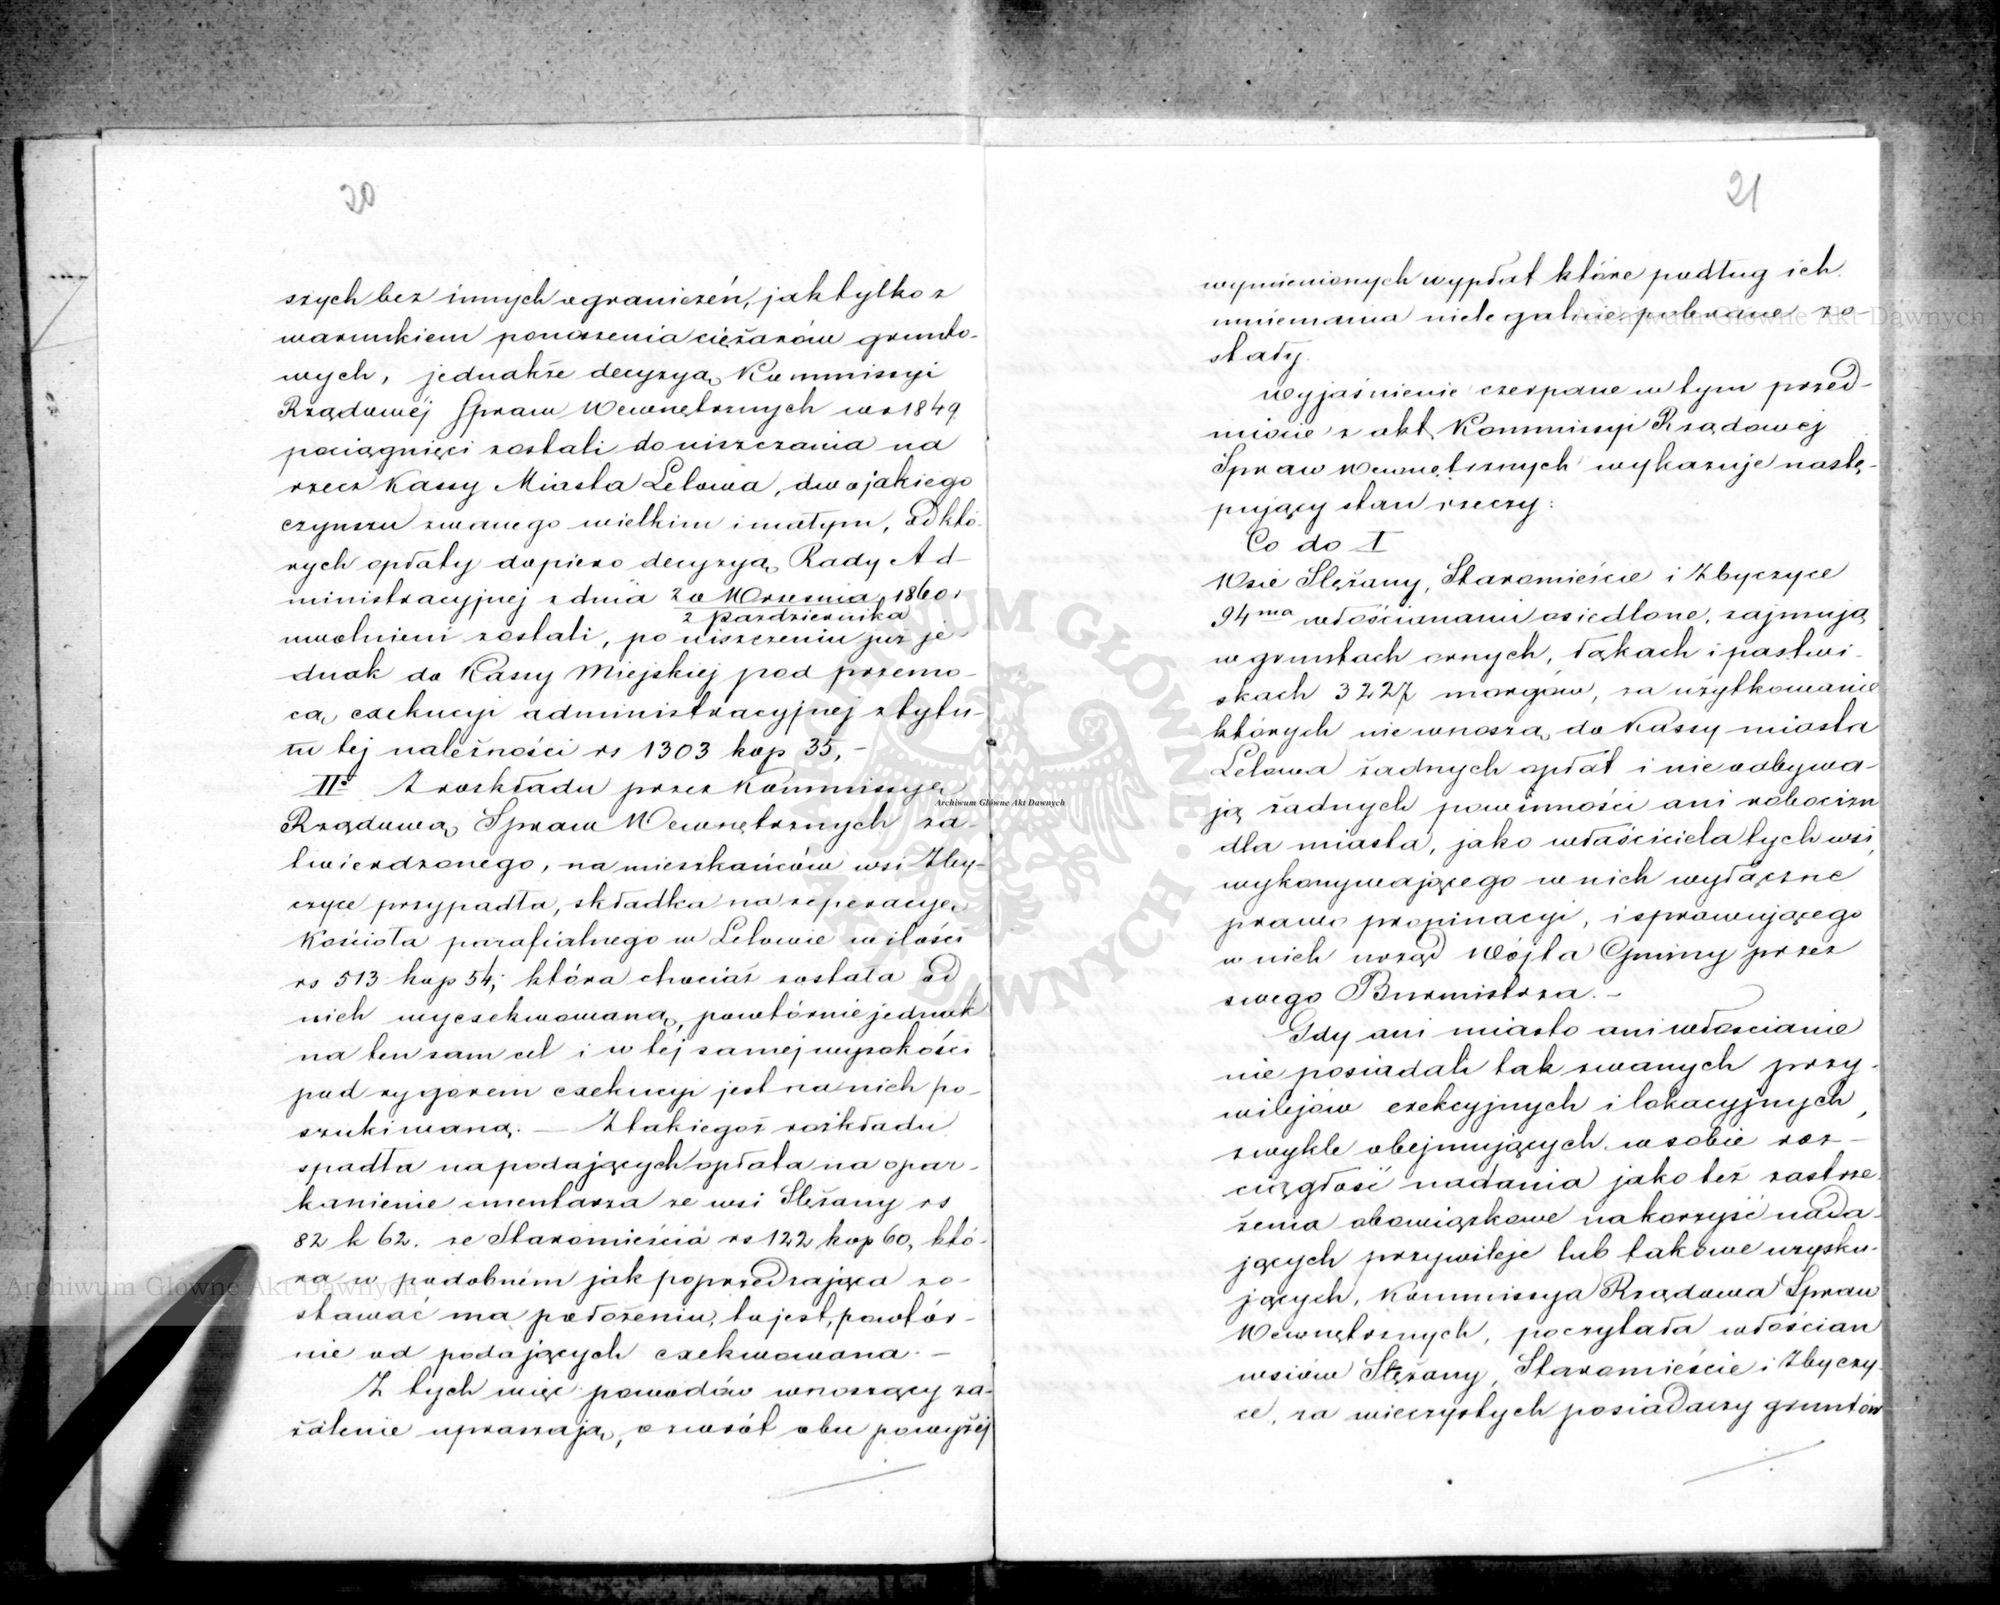 20
szych bez innych ograniczeń, jak tylko z
warunkiem ponoszenia ciężarów grunto-
wych, jednakże decyzyą Kommissyi
Rządowéj Spraw Wewnętrznych w r 1849
pociągnięci zostali do uiszczania na
rzecz Kassy Miasta Lelowa, dwojakiego
czynszu zwanego wielkim i małym, od któ-
rych opłaty dopiero decyzyą Rady Ad-
ministracyjnej z dnia 20 Wrzesnia 1860 r
2 Pazdziernika
uwolnieni zostali, po uiszczeniu już je-
dnak do Kassy Miejskiej pod przemo-
cą exekucyi administracyjnej z tytu-
łu tej należności rs 1303 kop 35, –
II° Z rozkładu przez Kommissyę
Rządową Spraw Wewnętrznych za-
twierdzonego, na mieszkańców wsi Zby-
czyce przypadła, składka na reperacyę
Kościoła parafialnego w Lelowie w ilości
rs 513 kop 54; która chociaż została od
nich wyexekwowaną, powtórnie jednak
na ten sam cel i w tej samej wysokości
pod rygorem exekucyi jest na nich po-
szukiwaną. — Z takiegoż rozkładu
spadła na podających opłata na opar-
kanienie cmentarza ze wsi Slężany rs
82 k 62. ze Staromieścia rs 122 kop 60, któ-
ra w podobném jak poprzedzająca zo-
stawać ma położeniu, to jest, powtór-
nie od podających exekwowana. —
Z tych więc powodów wnoszący za-
żalenie upraszają, o zwrot obu powyżéj
21
wymienionych wypłat które podług ich
mniemania nielegalnie pobrane zo-
stały.
Wyjaśnienie czerpane w tym przed-
miocie z akt Kommissyi Rządowéj
Spraw Wewnętrznych wykazuje nastę-
pujący stan rzeczy:
Co do I
Wsie Slężany, Staromieście i Zbyczyce
94ma włościanami osiedlone, zajmują
w gruntach ornych, łąkach i pastwi-
skach 3227 morgów, za użytkowanie
których nie wnoszą do Kassy miasta
Lelowa żadnych opłat i nie odbywa-
ją żadnych powinności ani robocizn
dla miasta, jako właściciela tych wsi,
wykonywającego w nich wyłączne
prawo propinacyi, i sprawującego
w nich urząd Wójta Gminy przez
swego Burmistrza. –
Gdy ani miasto ani włoscianie
nie posiadali tak zwanych przy-
wilejów erekcyjnych i lokacyjnych,
zwykle obejmujących w sobie roz-
ciągłość nadania jako też zastrze-
żenia obowiązkowe na korzyść nada-
jących przywileje lub takowe uzysku-
jących, Kommissya Rządowa Spraw
Wewnętrznych, poczytała włościan
wsiów Slężany, Staromieście i Zbyczy-
ce, za wieczystych posiadaczy gruntów
Archiwum Główne Akt Dawnych
Archiwum Główne Akt Dawnych
Archiwum Główne Akt Dawnych
ARCHIWUM GŁÓWNE AKT DAWNYCH